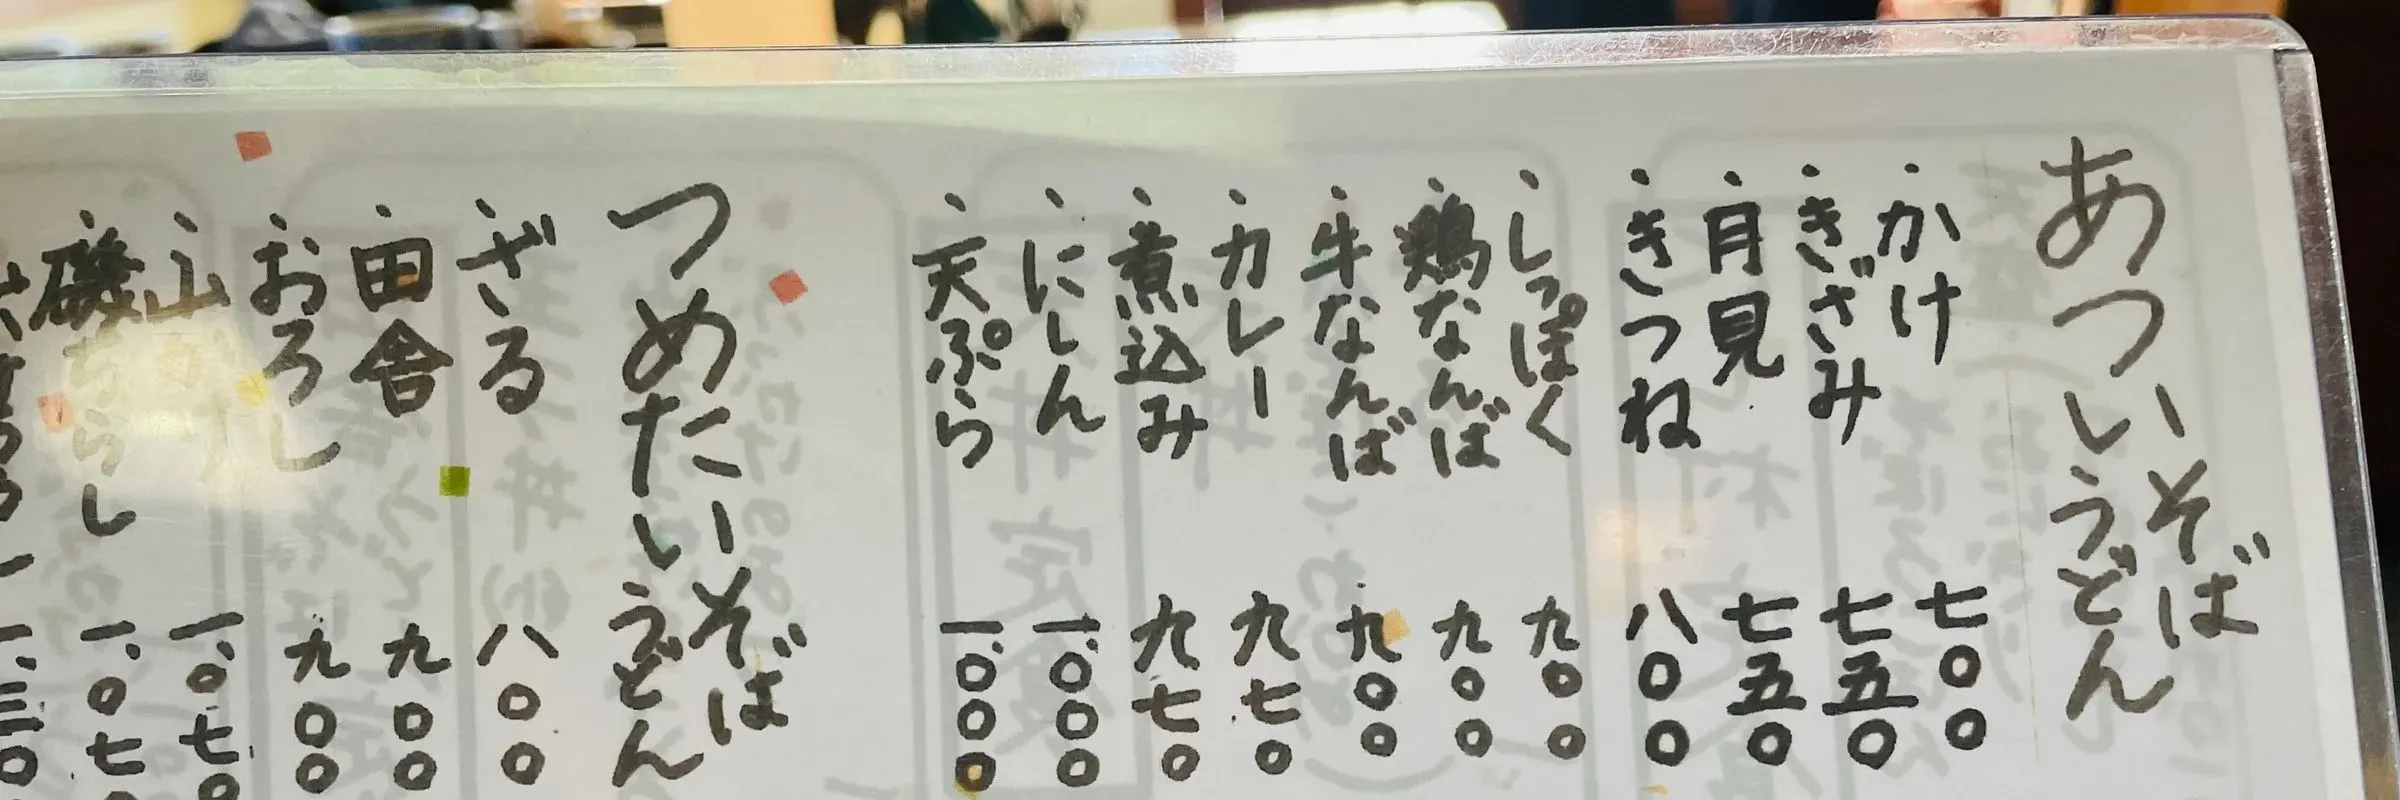 あつい そば うどん
・かけ 七〇〇
・きざみ 七五〇
・月見 七五〇
・きつね 八〇〇
・しっぽく 九〇〇
・鶏なんば 九〇〇
・牛なんば 九〇〇
・カレー 九七〇
・煮込み 九七〇
・にしん 一、〇〇〇
・天ぷら 一、〇〇〇
つめたい そば うどん
・ざる 八〇〇
・田舎 九〇〇
・おろし 九〇〇
・山 一、〇七〇
・磯ちらし 一、〇七〇
一、三〇